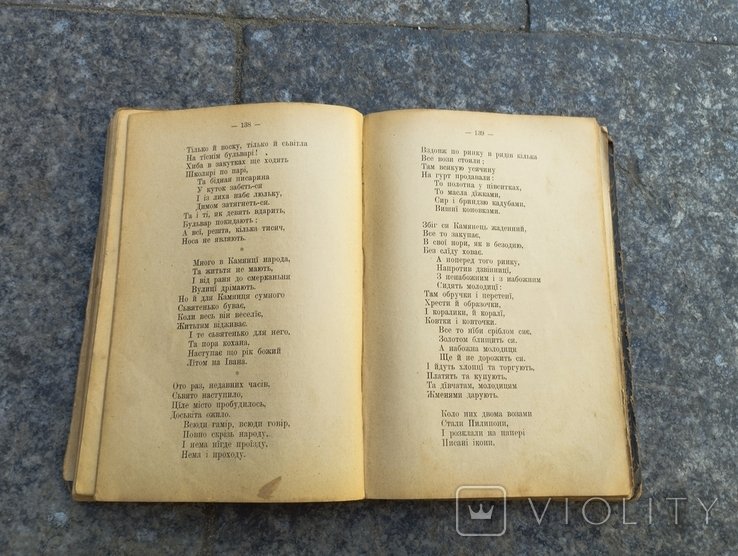 — 138 —
Тілько й воску, тілько й сьвітла
На тїснім бульварі!
Хиба в закутках ще ходить
Школярі по парі,
Та бідная писарина
У куток забеть-ся
І із лиха набє люльку,
Димом затягнеть-ся.
Та і ті, як девять вдарить,
Бульвар покидають:
А всї, решта, кілька тисяч,
Носа не являють.
*
Много в Камянцї народа,
Та житья не мають,
І від раня до смерканьня
Вулицї дрімають.
Но й для Камянця сумного
Сьвятенько буває,
Коли весь він веселїє,
Житьтим відживає.
І те сьвятенько для него,
Та пора кохана,
Наступає що рік божий
Лїтом на Івана.
*
Ото раз, недавних часїв,
Сьвято наступило,
Цїле місто пробудилось,
Досьвіта ожило.
Всюди гамір, всюди говір,
Повно скрізь народу,
І нема нїгде проїзду,
Нема і проходу.
— 139 —
Вздовж по ринку й рядїв кілька
Все вози стояли;
Там всякую усячину
На гурт продавали:
То полотна у півситках,
То масла дїжками,
Сир і бриндзю кадубами,
Вишнї коновками.
Збіг си Камянець жаденний,
Все то закупає,
В свої нори, як в безодню,
Без слїду ховає.
А поперед того ринку,
Напротив дзвіницї,
З ненабожним і з набожним
Сидять молодицї:
Там обручки і перстенї,
Хрести й образочки,
І корадики, й коралї,
Ковтки і ковточки.
Все то нїби сріблом сяє,
Золотом блищить ся.
А набожна молодиця
Ще й не дорожить ся.
І йдуть хлопцї та торгують,
Платять та купують,
Та дївчатам, молодицям
Жменями дарують.
Коло них двома возами
Стали Пилипони,
І розклали на паперī
Писані ікони.
VIOLITY